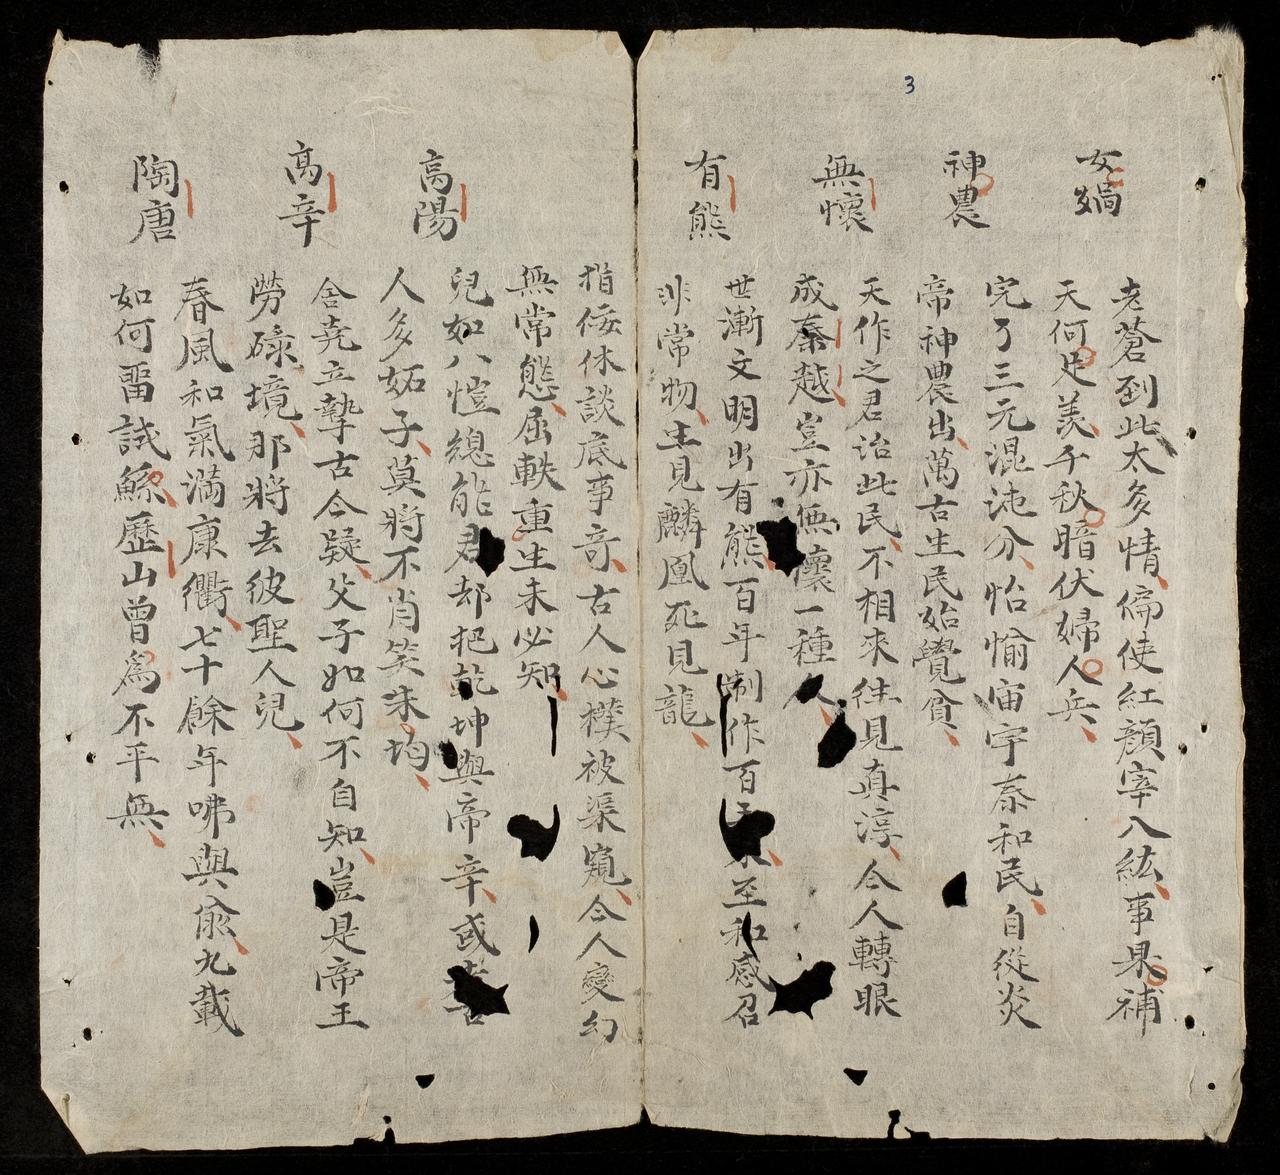 3
女媧
老蒼到此太多情偏使紅顏宰八紘事果補
天何足羨千秋暗伏婦人兵
神農
完了三元混沌分怡愉宙宇泰和民自從炎
帝神農出萬古生民始覺貧
無懷
天作之君治此民不相來往見真淳今人轉眼
成秦越豈亦無懷一種人
有熊
世漸文明出有熊百年制作百至和感召
非常物生見麟凰死見龍
指佞休談底事奇古人心樸被渠窺今人變幻
無常態屈軼重生未必知
高陽
兒如八愷總能君却把乾坤與帝辛或
人多妬子莫將不肖笑朱均
高辛
舍堯立摯古今疑父子如何不自知豈是帝王
勞碌境那將去彼聖人兒
陶唐
春風和氣滿康衢七十餘年咈與俞九載
如何畱試鯀歷山曾為不平無